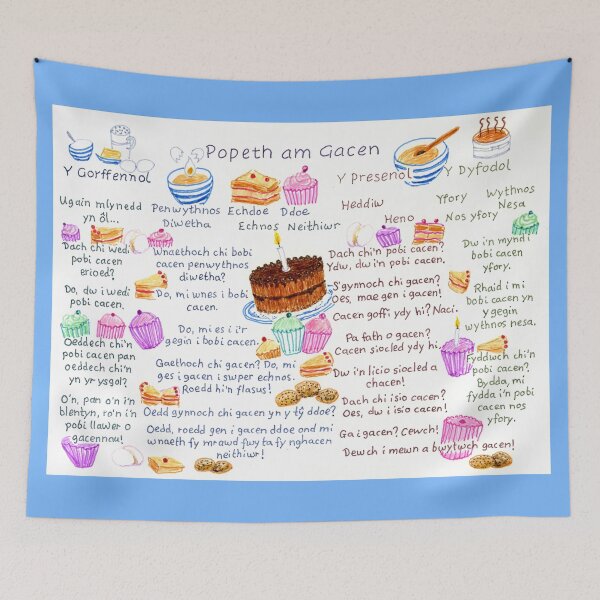 Popeth am Gacen
Y Gorffennol
Ugain mlynedd
yn ôl...
Penwythnos
Diwetha
Echdoe
Ddoe
Echnos
Neithiwr
Y Presenol
Heddiw
Heno
Y Dyfodol
Yfory
Nos yfory
Wythnos
Nesa
Dach chi wedi
pobi cacen
erioed?
Do, dw i wedi
pobi cacen.
Oeddech chi'n
pobi cacen pan
oeddech chi'n
yn yr ysgol?
O'n, pan o'n i'n
blentyn, ro'n i'n
pobi llawer o
gacennau!
Wnaethoch chi bobi
cacen penwythnos
diwetha?
Do, mi wnes i bobi
cacen.
Do, mi es i i'r
gegin i bobi cacen.
Gaethoch chi gacen? Do, mi
ges i gacen i swper echnos.
Roedd hi'n flasus!
Oedd gynnoch chi gacen yn y tŷ ddoe?
Oedd, roedd gen i gacen ddoe ond mi
wnaeth fy mrawd fwyta fy nghacen
neithiwr!
Dach chi'n pobi cacen?
Ydw, dw i'n pobi cacen.
S'gynnoch chi gacen?
Oes, mae gen i gacen!
Cacen goffi ydy hi? Naci.
Pa fath o gacen?
Cacen siocled ydy hi.
Dw i'n licio siocled a
chacen!
Dach chi isio cacen?
Oes, dw i isio cacen!
Ga i gacen? Cewch!
Dewch i mewn a bwytwch gacen!
Dw i'n mynd i
bobi cacen
yfory.
Rhaid i mi
bobi cacen yn
y gegin
wythnos nesa.
Fyddwch chi'n
pobi cacen?
Bydda, mi
fydda i'n pobi
cacen nos
yfory.